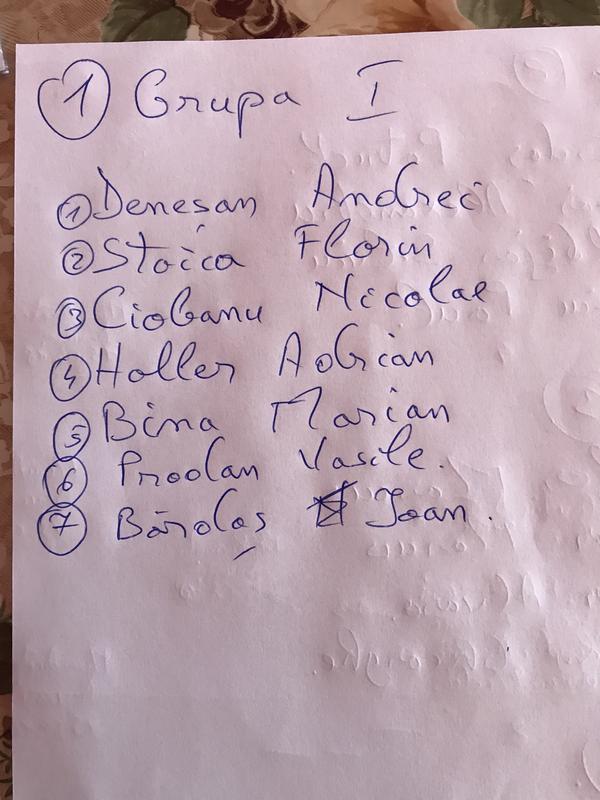 1 Grupa I
1 Deneșan Andrei
2 Stoica Florin
3 Ciobanu Nicolae
4 Holler Adrian
5 Bina Marian
6 Prodan Vasile.
7 Bărdaș Ioan.